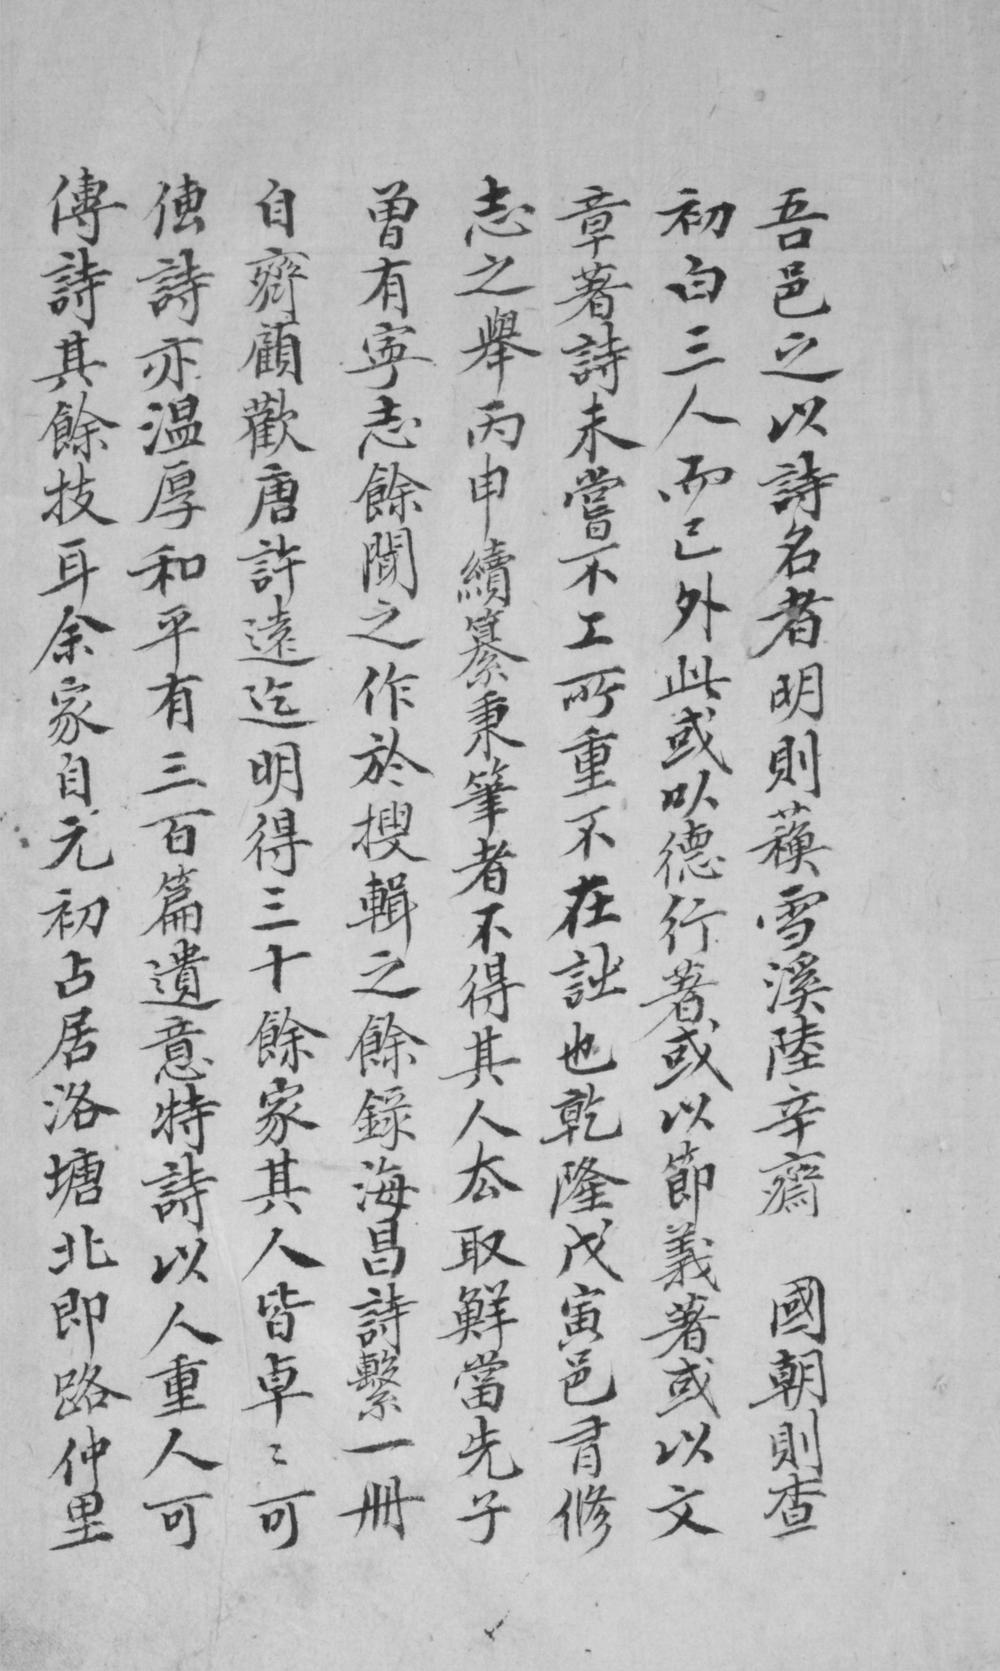 吾邑之以詩名者明則蘓雪溪陸辛齋　國朝則查
初白三人而已外此或以德行著或以節義著或以文
章著詩未嘗不工所重不在詩也乾隆戊寅邑有修
志之舉丙申續纂秉筆者不得其人去取鮮當先子
曾有寧志餘聞之作於搜輯之餘錄海昌詩繫一冊
自齊顧歡唐許遠迄明得三十餘家其人皆卓〻可
傳詩亦温厚和平有三百篇遺意特詩以人重人可
傳詩其餘技耳余家自元初占居洛塘北即路仲里